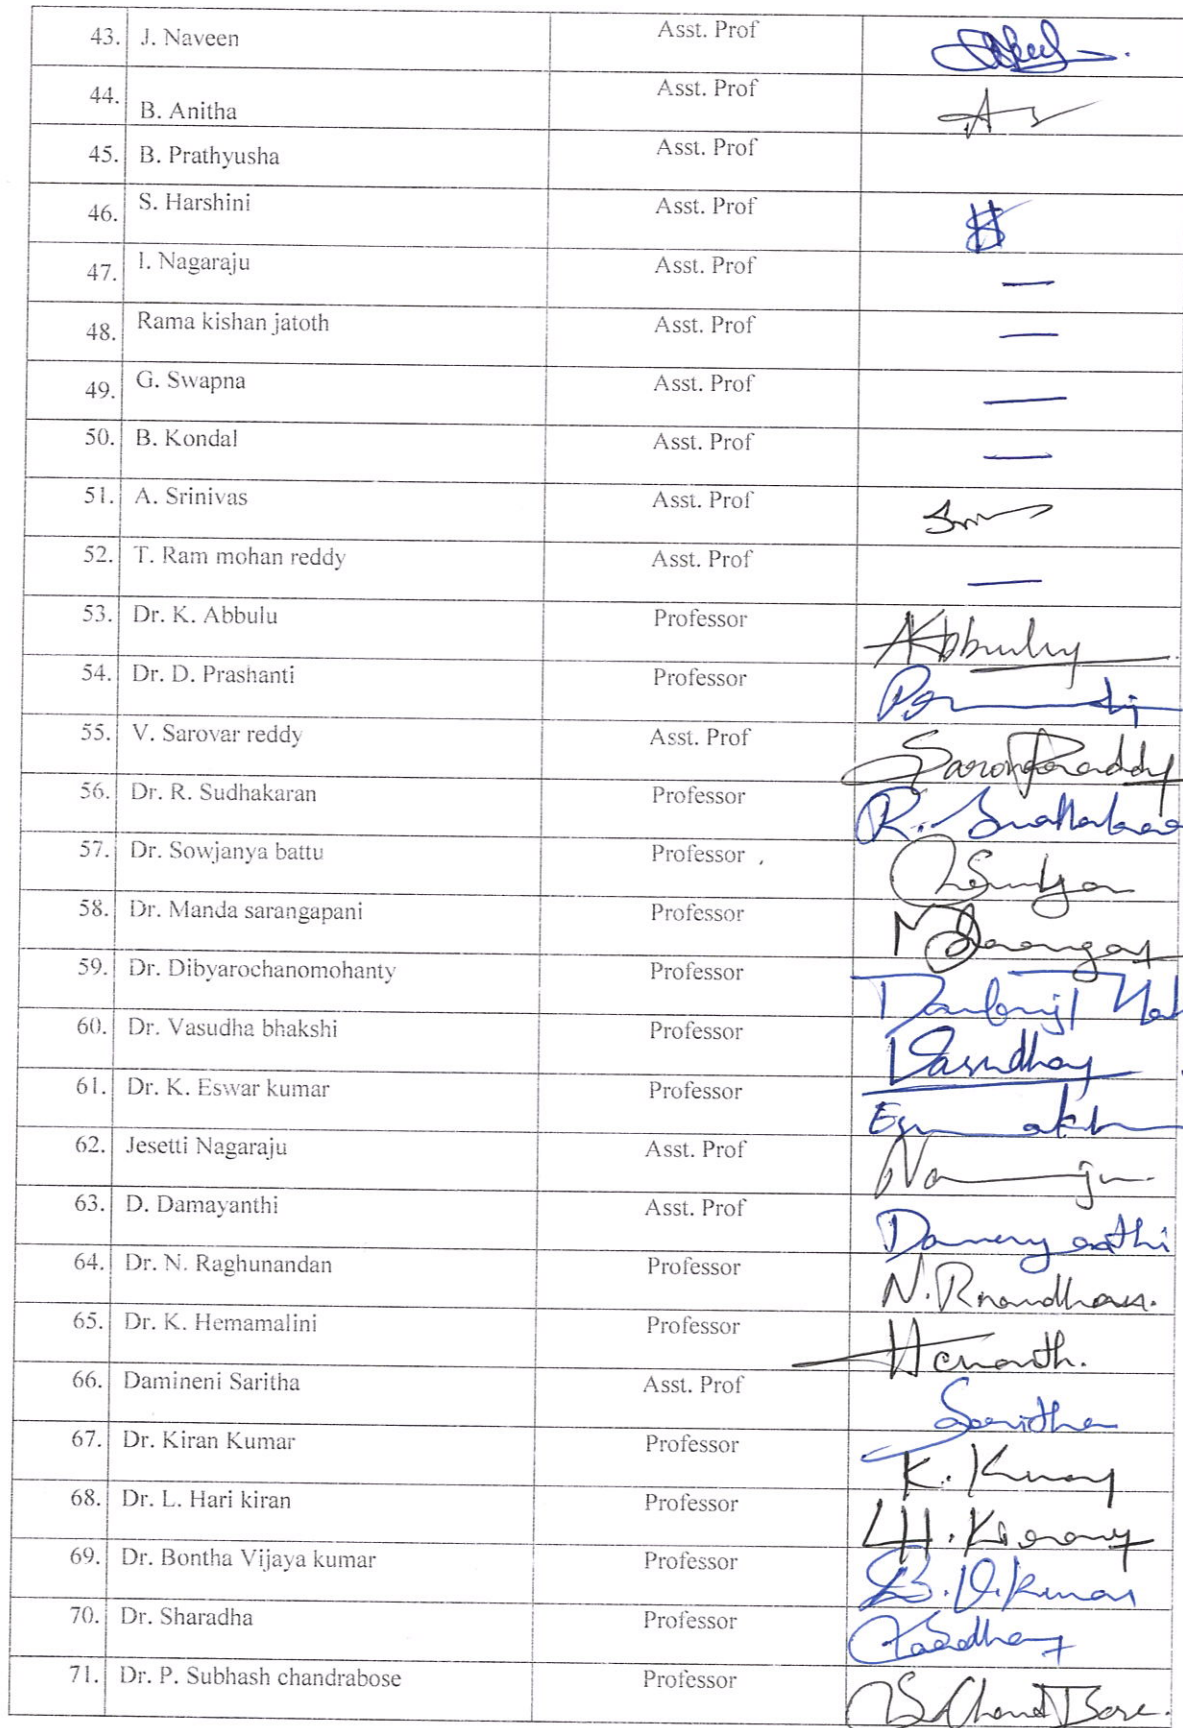 43. J. Naveen Asst. Prof
44. B. Anitha Asst. Prof
45. B. Prathyusha Asst. Prof
46. S. Harshini Asst. Prof
47. I. Nagaraju Asst. Prof —
48. Rama kishan jatoth Asst. Prof —
49. G. Swapna Asst. Prof —
50. B. Kondal Asst. Prof —
51. A. Srinivas Asst. Prof
52. T. Ram mohan reddy Asst. Prof —
53. Dr. K. Abbulu Professor
54. Dr. D. Prashanti Professor
55. V. Sarovar reddy Asst. Prof
56. Dr. R. Sudhakaran Professor
57. Dr. Sowjanya battu Professor
58. Dr. Manda sarangapani Professor
59. Dr. Dibyarochanomohanty Professor
60. Dr. Vasudha bhakshi Professor
61. Dr. K. Eswar kumar Professor
62. Jesetti Nagaraju Asst. Prof
63. D. Damayanthi Asst. Prof
64. Dr. N. Raghunandan Professor
65. Dr. K. Hemamalini Professor
66. Damineni Saritha Asst. Prof
67. Dr. Kiran Kumar Professor
68. Dr. L. Hari kiran Professor
69. Dr. Bontha Vijaya kumar Professor B.V.Kumar
70. Dr. Sharadha Professor
71. Dr. P. Subhash chandrabose Professor